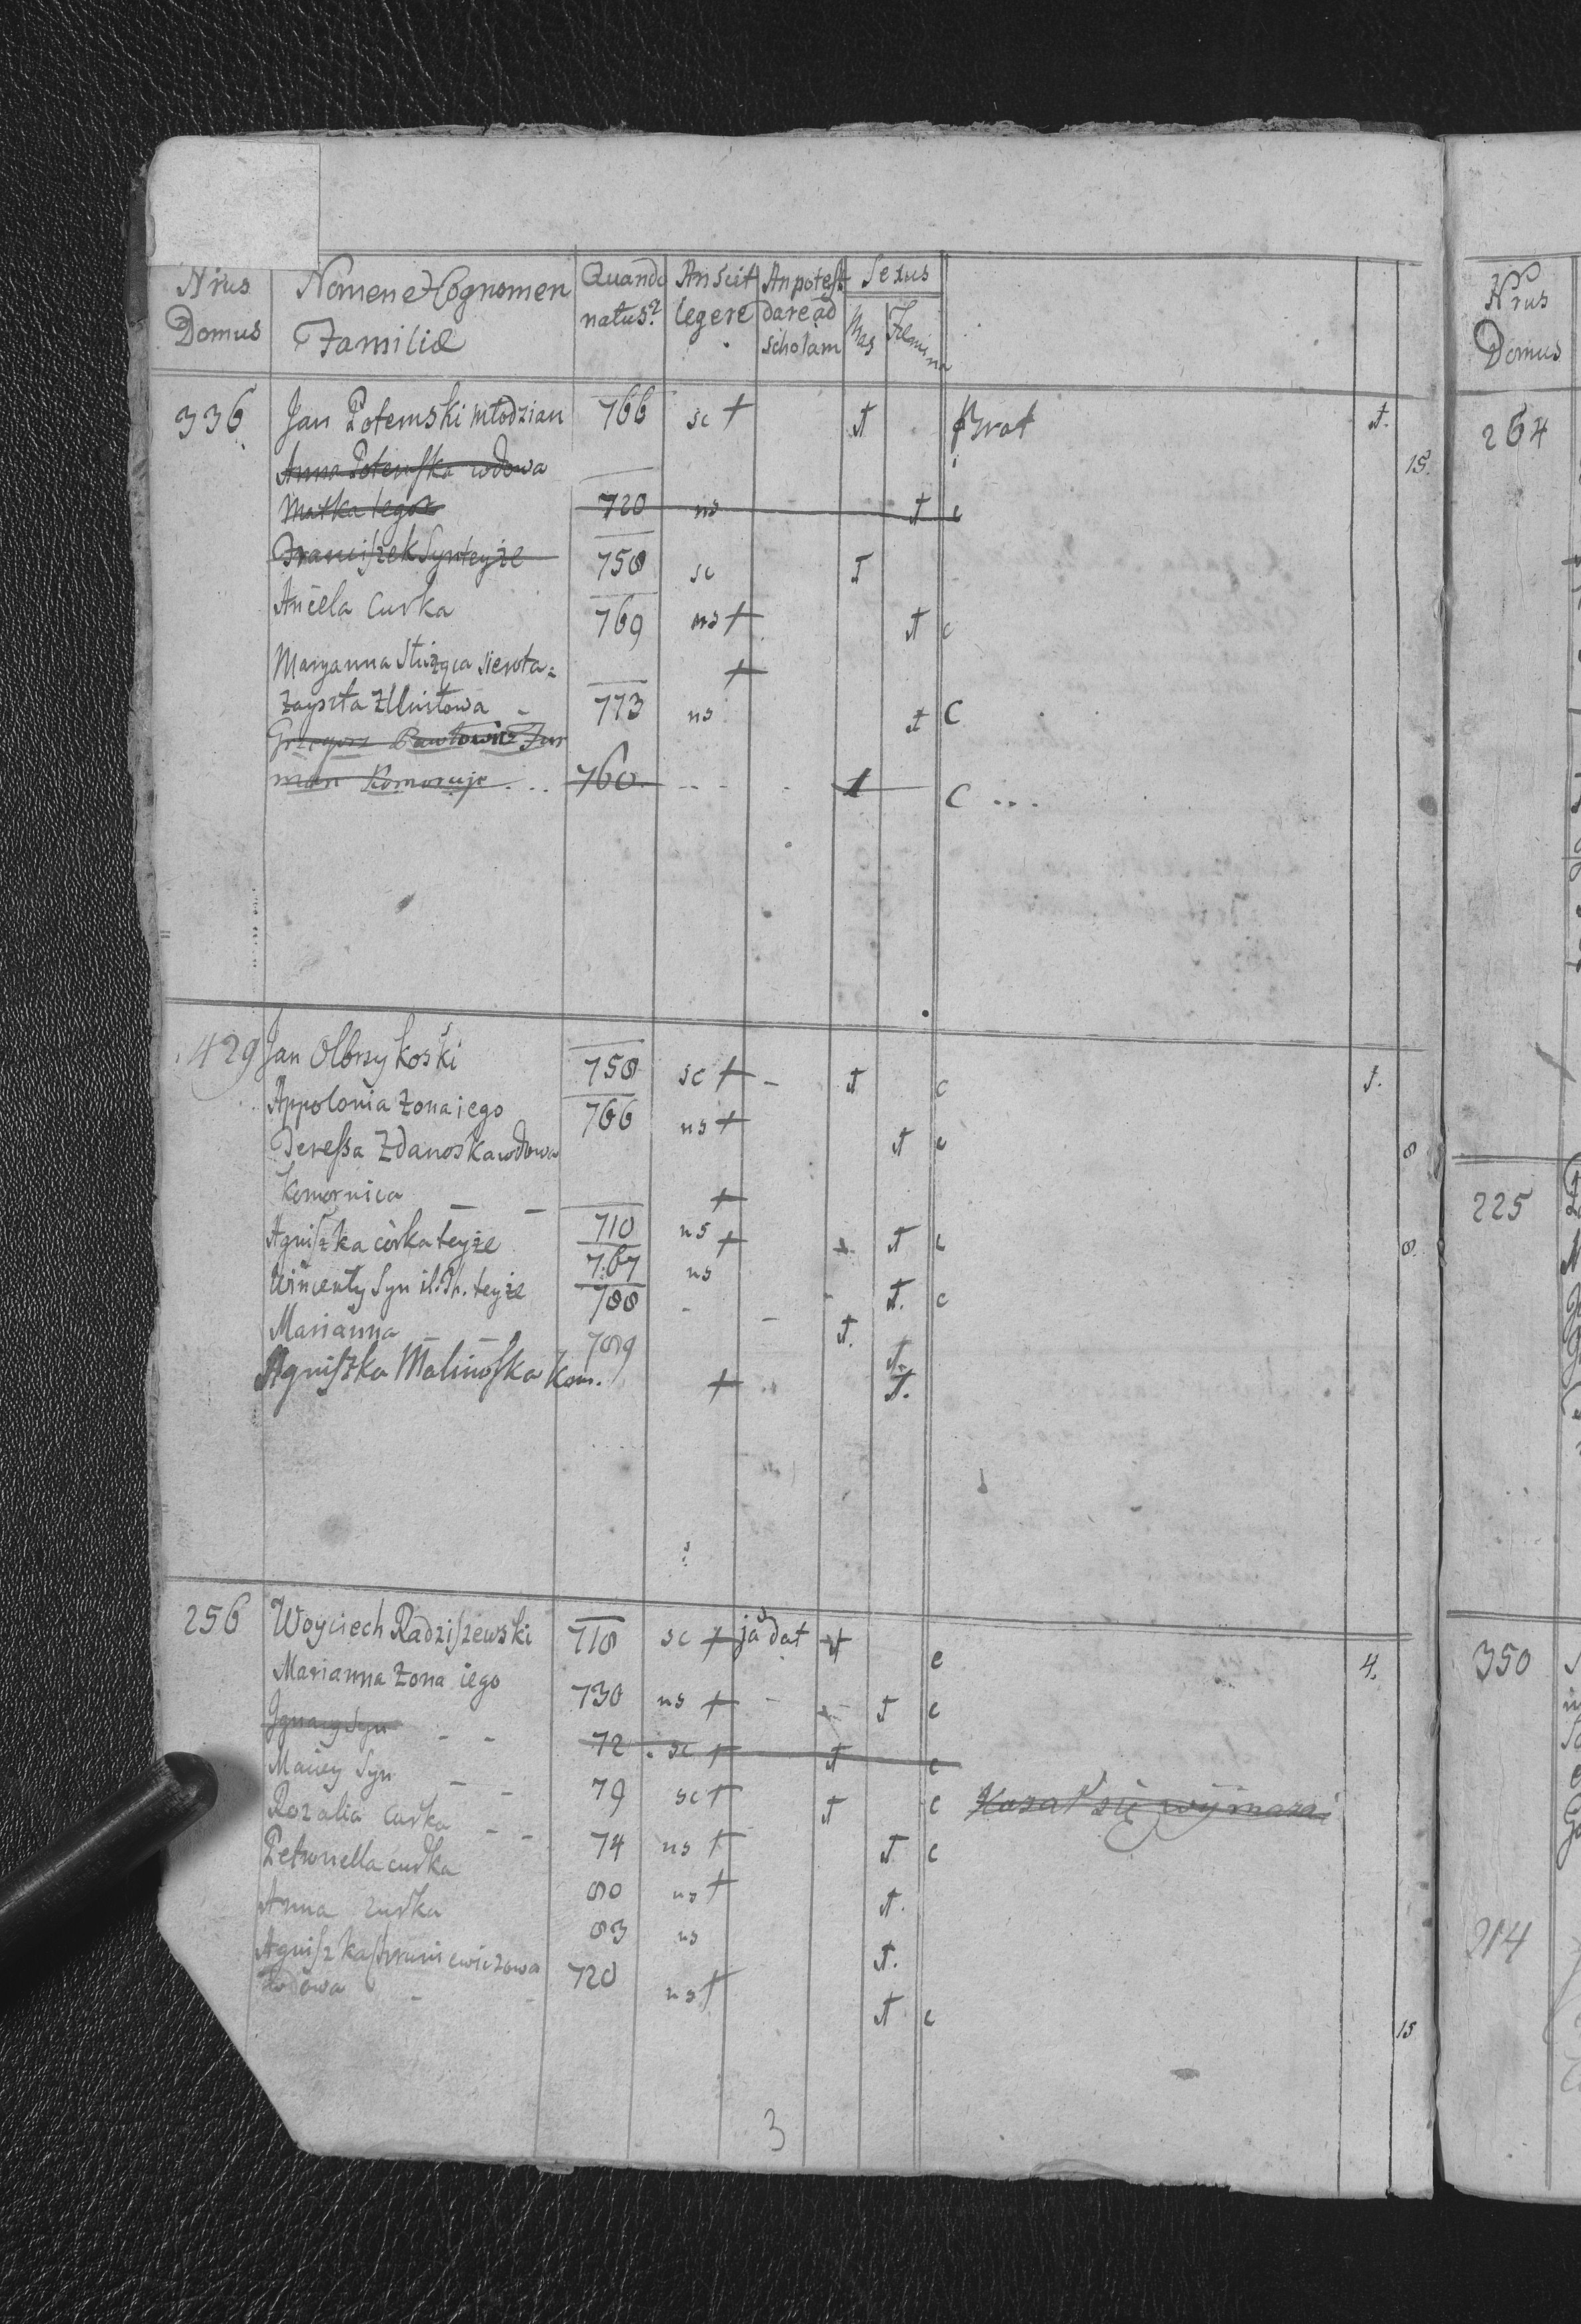 Nrus Domus Nomen et Cognomen Familiæ Quando natus? An scit legere An potest dare ad scholam Sexus Mas Fæmina
336 Jan Potemski młodzian 766 sc + †
Anna Potemska wdowa
Matka tegoż 720 ns † c
Franciszek Syn teyże 758 sc †
Aniela Curka 769 ns + † c
Maryanna Służąca sierota = +
773 ns † C
Grzegorz Pawłowicz Fur
man Komoruje 760 † C
18.
429 Jan Olbrykoski 758 sc + † c
Appolonia Zona iego 766 ns + † c
Teressa Zdanoska wdowa
Komornica 710 ns + † c
Agniszka córka teyże 767 ns + †. c
Wincenty Syn teyże 788 - †.
Marianna 789 †.
Agniszka Malinoska Kom. + †.
8
8.
256 Woyciech Radziszewski 718 sc + † c 4.
Marianna Zona iego 730 ns + † c
Ignacy Syn 72 sc + † c
Maciey Syn 79 sc + † c Kazał się wymazać
Rozalia Curka 74 ns + † c
Petronella curka 80 ns + †.
Anna curka 83 ns †.
Agniszka
Wdowa 720 ns + † c
15
3
Nrus Domus
264
225
350
214